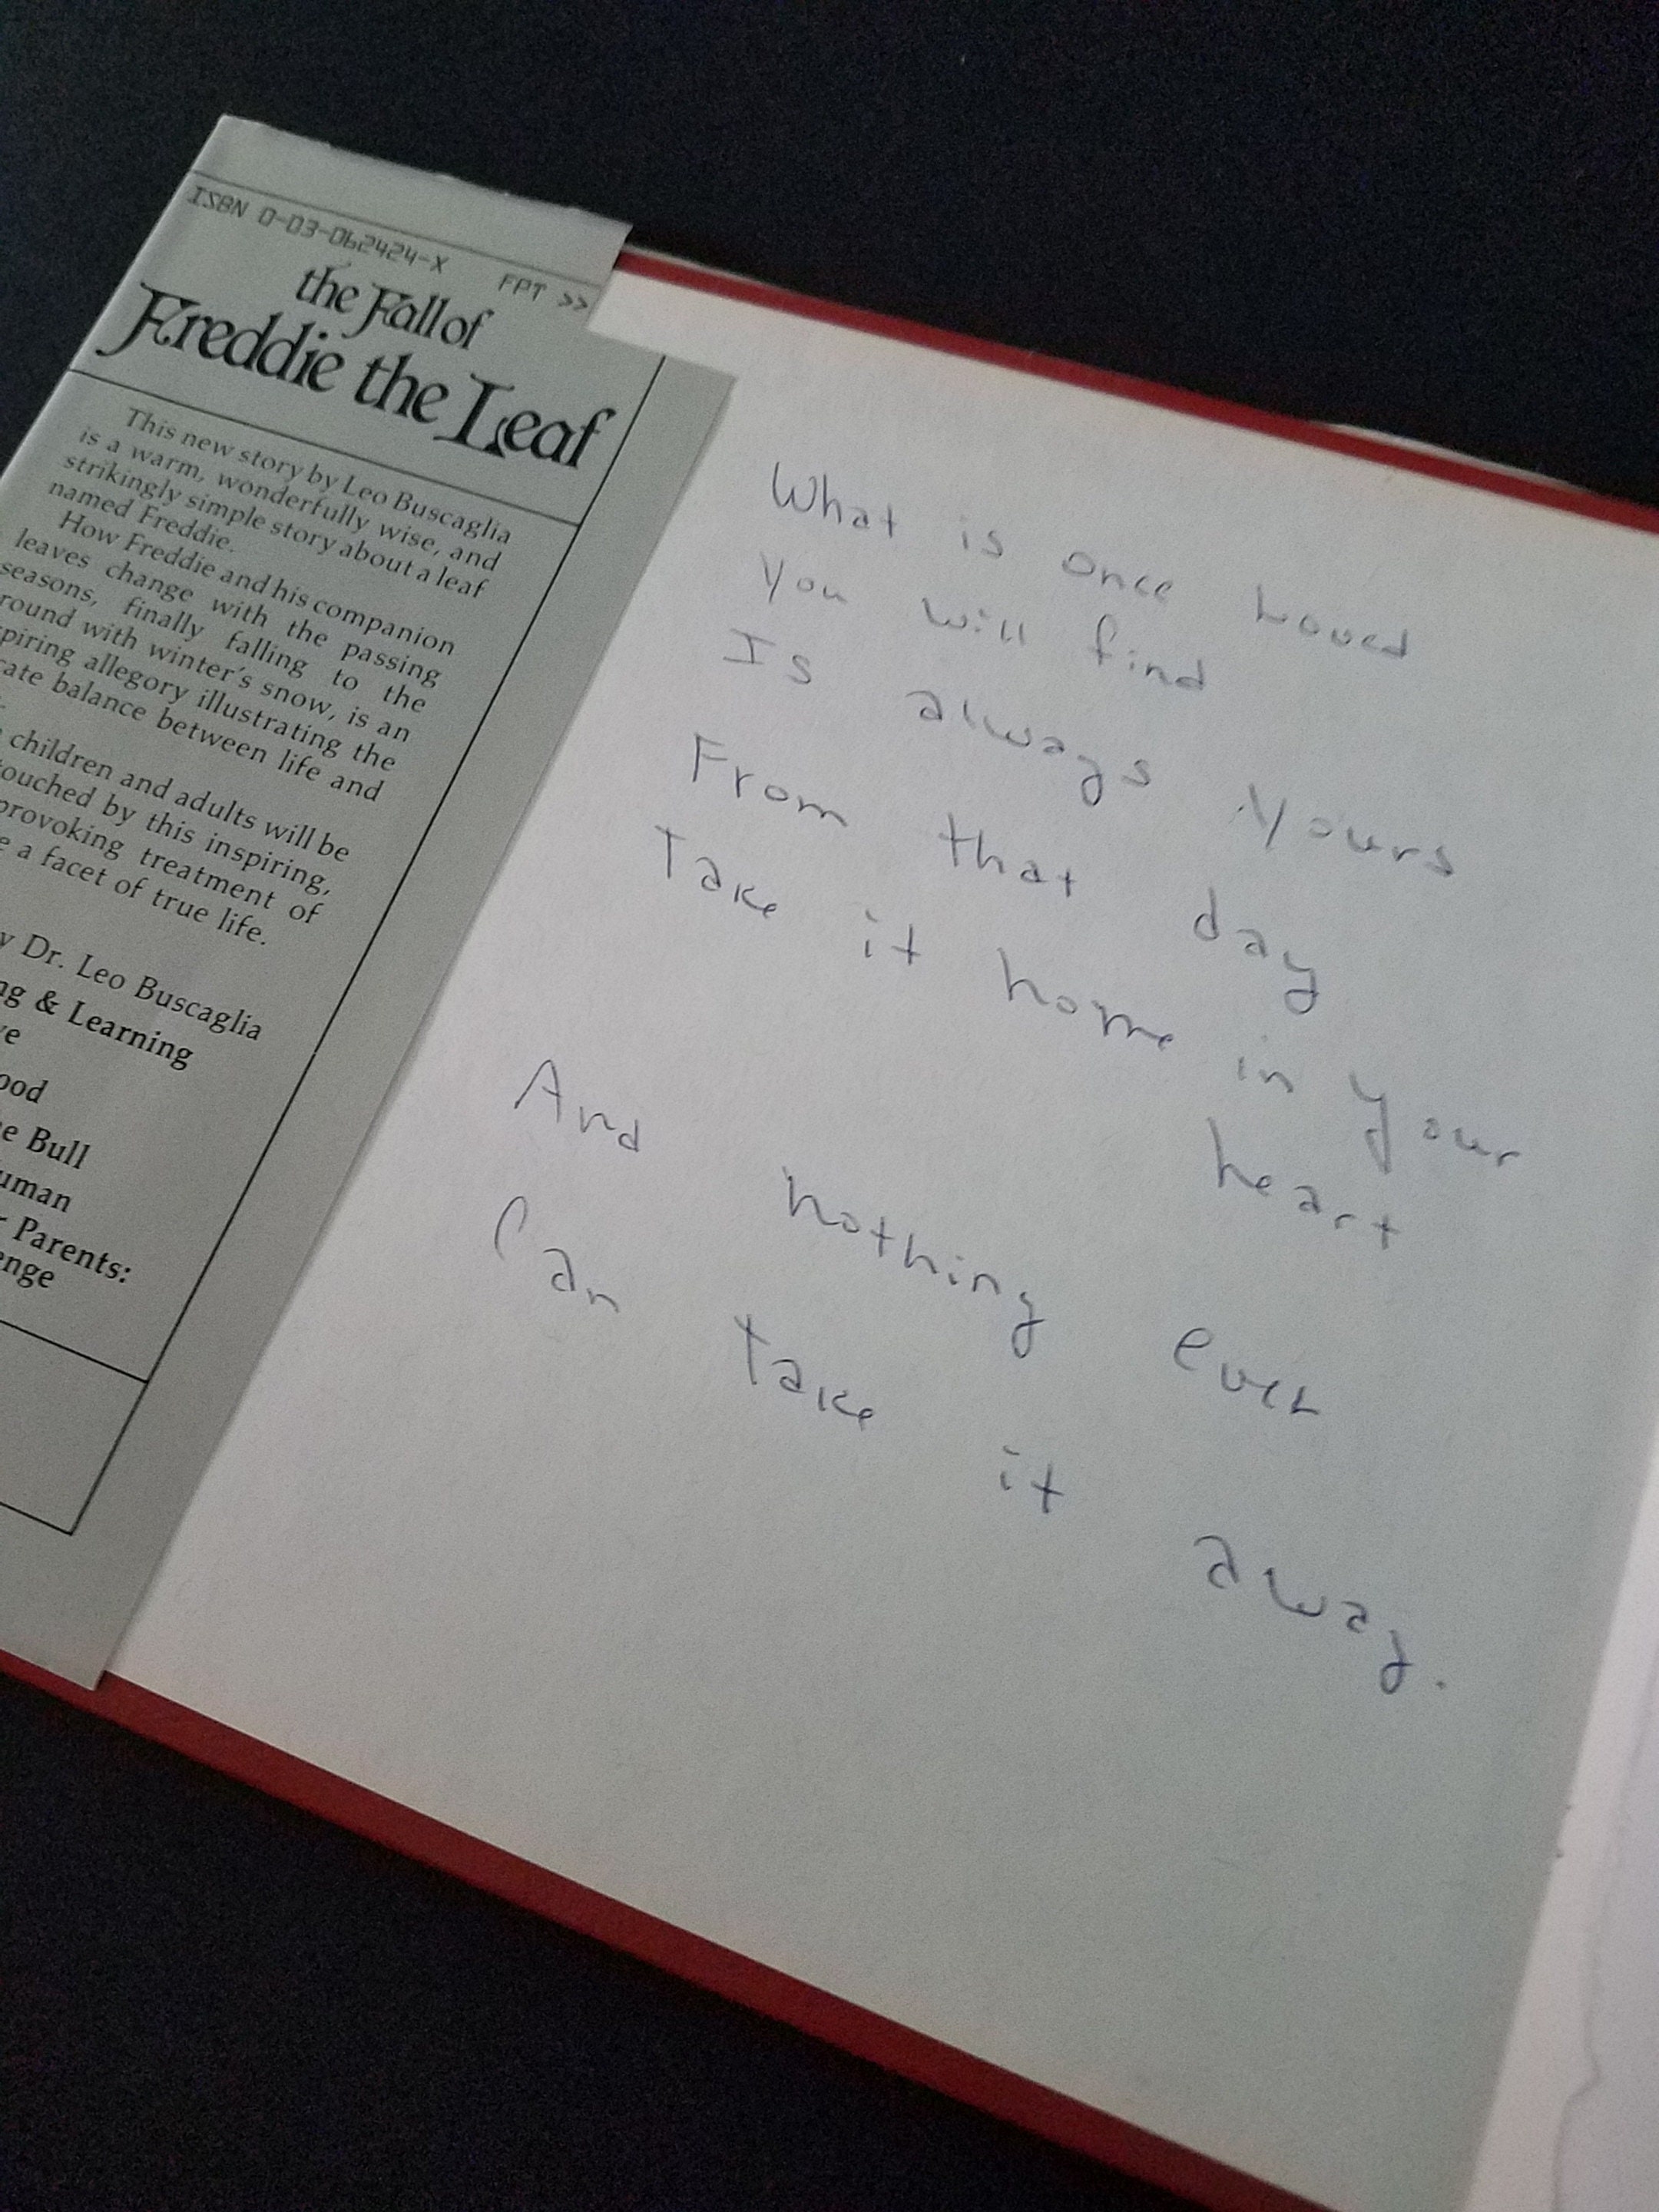 ISBN 0-03-062424-X FPT >>
the Fall of
Freddie the Leaf
This new story by Leo Buscaglia
is a warm, wonderfully wise, and
strikingly simple story about a leaf
named Freddie.
How Freddie and his companion
leaves change with the passing
seasons, finally falling to the
round with winter's snow, is an
piring allegory illustrating the
cate balance between life and
children and adults will be
touched by this inspiring,
provoking treatment of
e a facet of true life.
y Dr. Leo Buscaglia
ng & Learning
ve
ood
e Bull
uman
r Parents:
enge
What is once Loved
You will find
Is always Yours
From that day
Take it home in your
heart
And nothing ever
Can take it away.